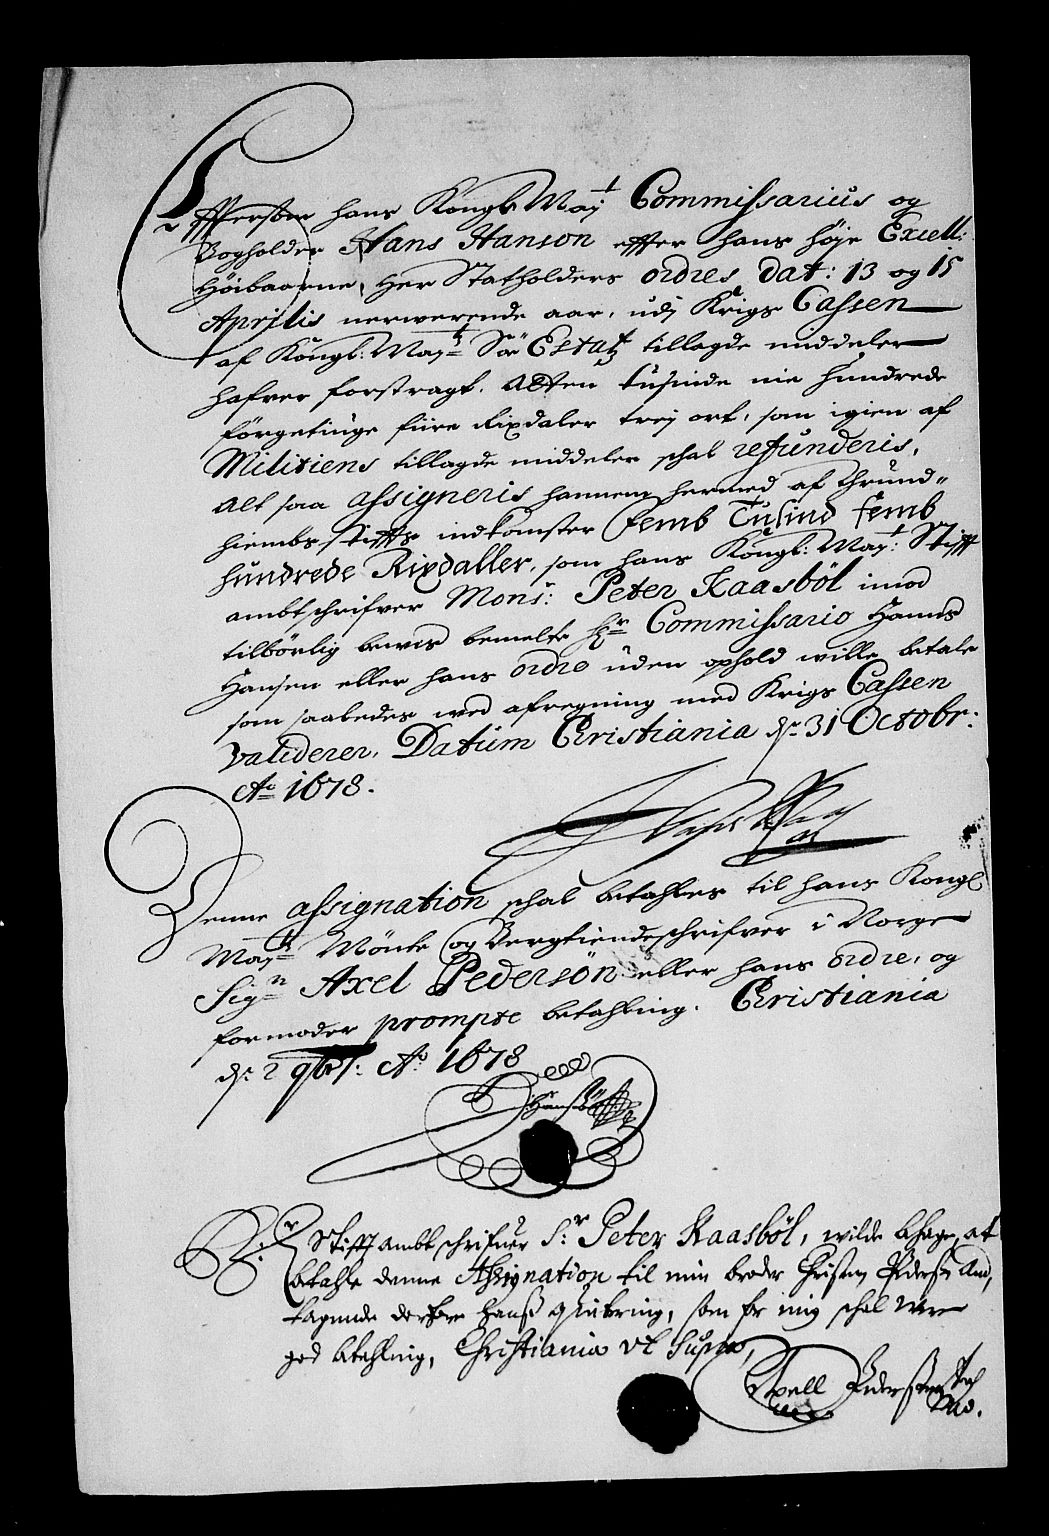 Effterson hans Kongl: May:t Commissarius og
Bogholder Hans Hanson effter hans höje Excell:
Höibaarne Her Statholders ordres dat: 13 og 15
Aprilis nerwerende aar, udj Krigs Cassen
af Kongl: May:tz Estatz tillagde middeler
hafver forstragt, Atten tusinde nie hundrede
förgetiuge fiire Rixdaler trej ort, som igien af
Militiens tillagde middeler schal refunderis,
Alt saa assigneris hannem hermed af Thrund-
hiembs stiffts indkomster Femb Tusind Femb
hundrede Rixdaller, som hans Kongl: May:t Stifft
ambtschrifver Mons: Peter Kaasböl imod
tilbörlig bewis bemelte Hr Commissario Hanns
Hansen eller hans ordre uden ophold wille betale
som saaledes wed afregning med Krigs Cassen
validerer, Datum Christiania dn: 31 Octobr:
Ao 1678.
Denne assignation schal betahles til hans Kongl
May:tz Mönte og Bergtiendeschrifver i Norge
Sign:r Axel Pedersön eller hans ordre, og
formoder prompte betahling. Christiania
dn: 2 9br: Ao 1678
Hr Stifftambtschrifuer Sr: Peter Kaasböl, wilde behage, at
betahle denne Assignation til min broder Christen Pedersen And,
tagende derfore hanß quitering, som for mig schal were
god betahling, Christiania ut supra,
Axell Pederßen